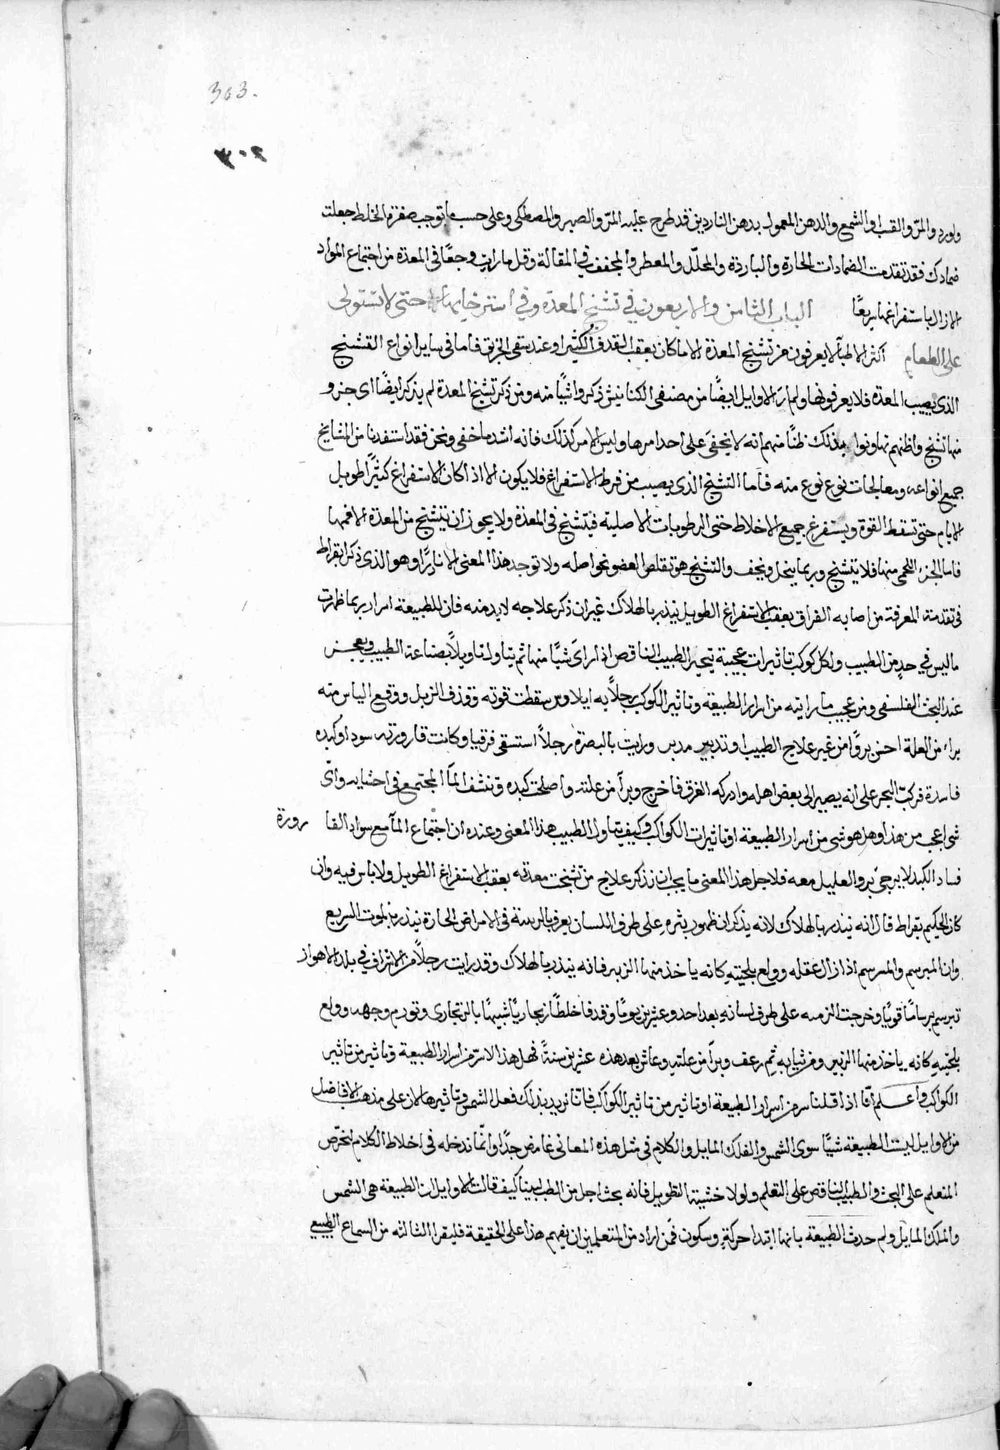 303.
٣٠٢
والورد والمرّ والقسب والشمع والدهن المعمول بدهن الناردين قد طرح عليه المرّ والصبر والمصطكى وعلى حسب ما توجب صفة الخلط جعلت
ضمادك فقد تقدمت الضمادات الحارة والباردة والمحلل والمعطر والمجفف في المقالة وقل ما رايت وجعا في المعدة من اجتماع المواد
الا زال باستفراغها سريعًا الباب الثامن والاربعون في تشنج المعدة وفي استرخايها حتى لا تستولى
على الطعام اكثر الاطبا لا يعرفون من تشنج المعدة الا ما كان يعقب القذف الكثير او عند سقى الخربق فاما في ساير انواع التشنج
الذي يصيب المعدة فلا يعرفونها ولم ار الاوايل ايضًا من مصنفى الكنانيش ذكروا شيًا منه ومن ذكر تشنج المعدة لم يذكر ايضًا اى جزو
منها تشنج واظنهم تهاونوا بذلك ظنًا منهم انه لا يخفى على احد امرها وليس الامر كذلك فانه اشد ما خفى ونحن فقد استفدنا من المشايخ
جميع انواعه ومعالجات نوع نوع منه فاما التشنج الذى يصيب من فرط الاستفراغ فلا يكون الا اذا كان الاستفراغ كثيرًا طويل
الايام حتى تسقط القوة ويستفرغ جميع الاخلاط حتى الرطوبات الاصلية فيتشنج فم المعدة ولا يجوز ان يتشنج من المعدة الا فمها
فاما الجزء اللحمى منها فلا يتشنج وربما ينحل ويخف والتشنج هو تقلص العضو نحو اصله ولا توجد هذا المعنى الا نادرًا وهو الذى ذكر ابقراط
في تقدمة المعرفة من اصابه الفواق بعقب الاستفراغ الطويل ينذر بالهلاك غير ان ذكر علاجه لابد منه فان للطبيعة اسرار ربما ظهرت
ما ليس في حدٍ من الطبيب ولكل كوكب تاثيرات عجيبة تحير الطبيب الناقص اذا راى شيًا منها ثم يتاوله تاويلًا بصناعة الطبيب ويعجز
عند البحث الفلسفى ومن عجيب ما رايته من اسرار الطبيعة وتاثير الكوكب رجلًا به ايلاوس سقطت قوته وقذف الزبل ووقع الياس منه
براء من العلة احسن بروًا من غير علاج الطبيب او تدبير مدبر ورايت بالبصرة رجلًا استسقى زقيا وكانت قارورته سودا وكبده
فاسدة فركب البحر على انه يصير الى بعض اهله وادركه الغرق فاخرج وبرأ من علته واصلحت كبده وتنشف الماء المجتمع في احشايه واىّ
شى اعجب من هذا وهل هو شى من اسرار الطبيعة او تاثيرات الكواكب وكيف يتاول الطبيب هذا المعنى وعنده ان اجتماع الماء مع سواد القارورة
فساد الكبد لا يرجى برو العليل معه فلاجل هذا المعنى ما يجب ان نذكر علاج من تشنجت معدته بعقب الاستفراغ الطويل ولا باس فيه وان
كان الحكيم بقراط قال انه ينذر بها لهلاك لانه يذكر ان ظهور بثره على طرف اللسان يعرف بالرسة في الامراض الحارة ينذر بالموت السريع
وان المبرسم والمسرسم اذا زال عقله وولع بلحيته كانه ياخذ منها الزبير فانه ينذر بالهلاك وقد رايت رجلًا من الاشراف في بلد الاهواز
تبرسم برسامًا قويًا وخرجت الزمه على طرف لسانه بعد احد وعشرين يومًا وقذف اخلطًا زنجاريًا شبيهًا بالزنجارى وتورم وجهه وولع
بلحيته كانه ياخذ منها الزبير ومن ثيابه ثم رعف وبرأ من علته وعاش بعد هذه عشرين سنةً فهل هذا الا سر من اسرار الطبيعة وتاثير من تاثير
الكواكب واعلم انا اذا قلنا سر من اسرار الطبيعة او تاثير من تاثير الكواكب فانا نريد بذلك فعل الشمس وتاثيرها لان على مذهب الافاضل
من الاوايل ليست الطبيعة شيًا سوى الشمس والفلك المايل والكلام في مثل هذه المعانى غامض جدًا وانما ندخله في اخلاط الكلام لنحرص
المتعلم على البحث والطبيب الناقص على التعلم ولولا خشية التطويل فانه بحث اجل من الطب لبينا كيف قالت الاوايل ان الطبيعة هى الشمس
والفلك المايل ولم حدث الطبيعة بانها ابتدا حركةٍ وسكون فمن اراد من المتعلمين ان يفهم هذا على الحقيقة فليقرا الثالثه من السماع الطبيعى